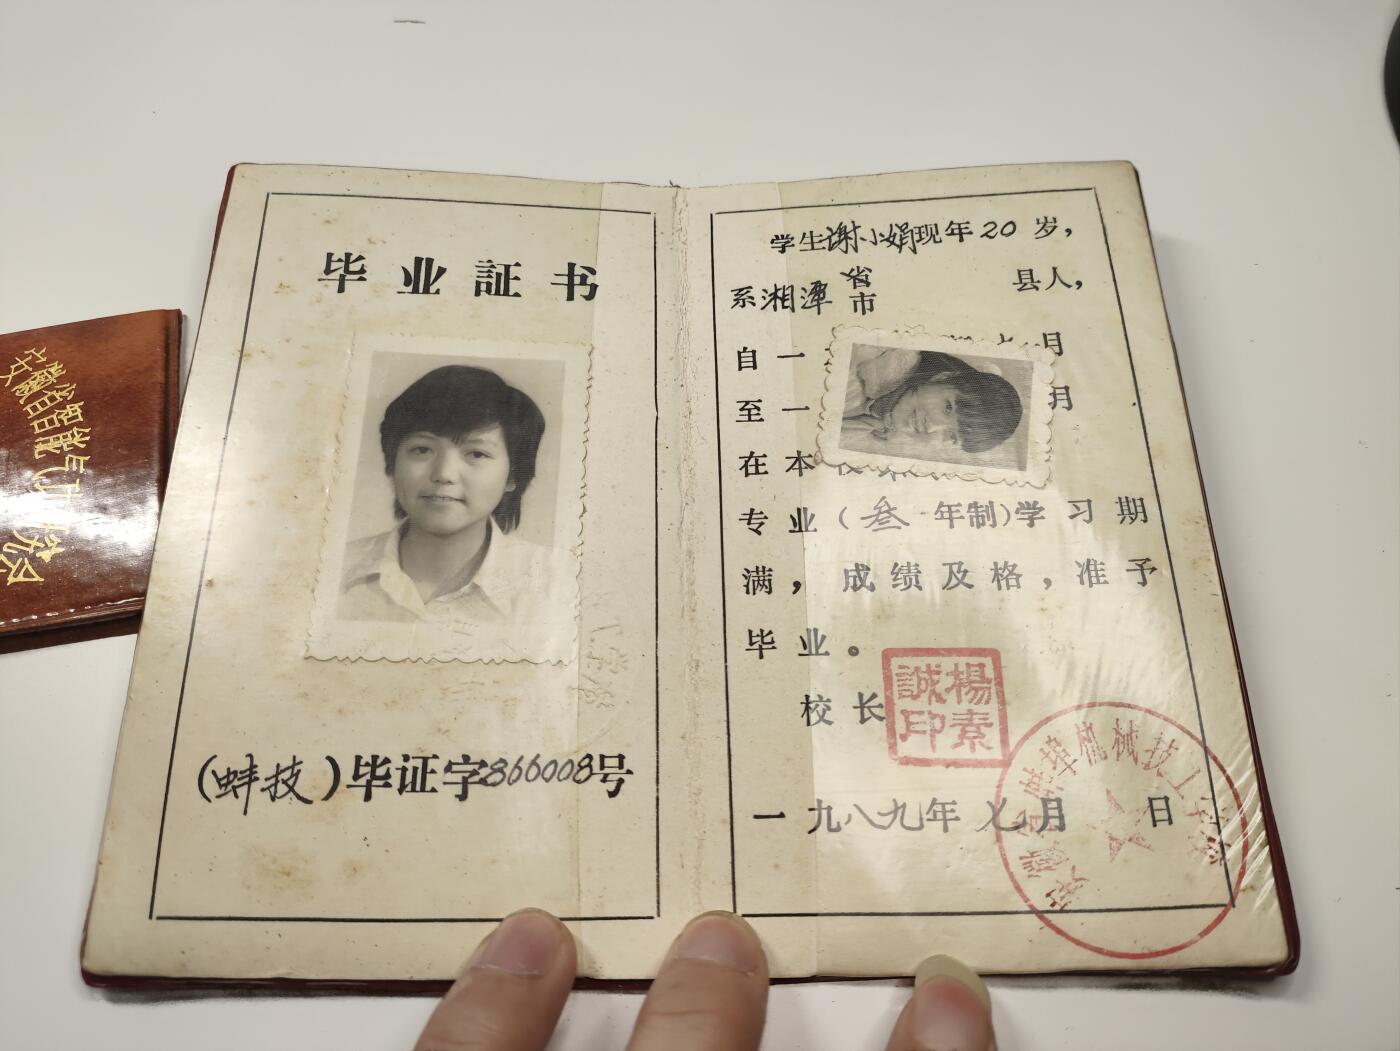 毕业証书
(蚌技)毕证字866008号
学生谢小娟现年20岁，
系湘潭省市 县人，
自一 七月
至一 月
在本
专业(叁年制)学习期
满，成绩及格，准予
毕业。
校长
楊素誠印
一九八九年七月 日
安徽省蚌埠机械技工学校
安徽省智能气功校